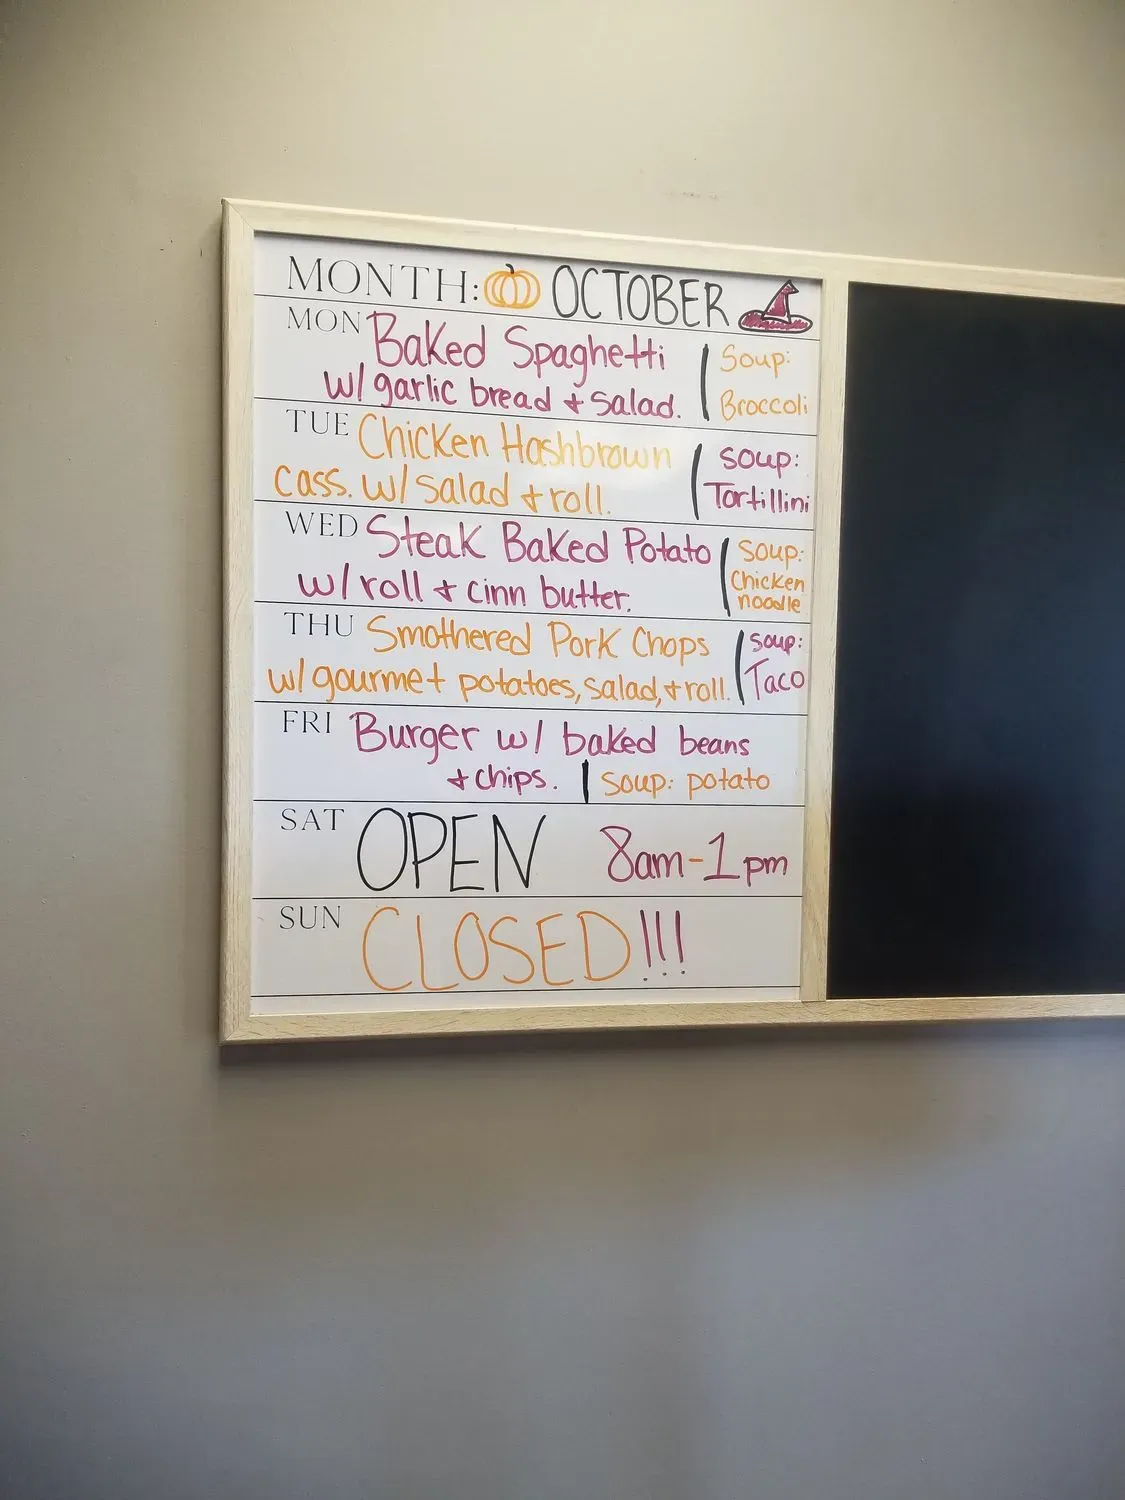 MONTH: OCTOBER
MON Baked Spaghetti
w/ garlic bread + salad.
Soup:
Broccoli
TUE Chicken Hashbrown
cass. w/ salad + roll.
soup:
Tortillini
WED Steak Baked Potato
w/ roll + cinn butter.
soup:
Chicken
noodle
THU Smothered Pork Chops
w/ gourmet potatoes, salad, + roll.
soup:
Taco
FRI Burger w/ baked beans
+ chips. | soup: potato
SAT OPEN 8am-1pm
SUN CLOSED!!!